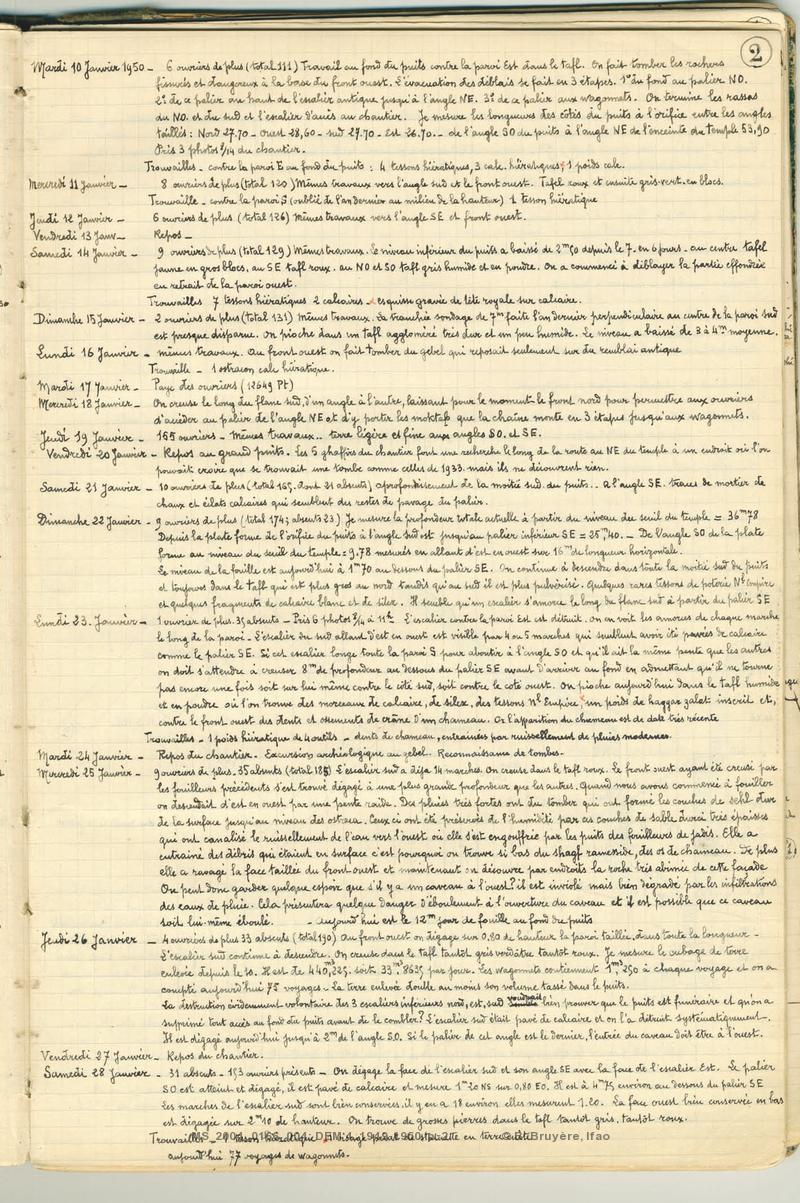 2
Mardi 10 Janvier 1950 - 6 ouvriers de plus (total 111) Travail au fond du puits contre la paroi Est dans le tafl. On fait tomber les rochers
fissurés et dangereux à la base du front ouest. L'évacuation des déblais se fait en 3 étapes. 1° du fond au palier NO.
2° de ce palier au haut de l'escalier antique jusqu'à l'angle NE. 3° de ce palier aux wagonnets. On termine les
du NO. et du sud et l'escalier d'accès au chantier. Je mesure les longueurs des côtés du puits à l'orifice entre les angles
taillés : Nord 27.70 - Ouest 28,60 - sud 27.70 - Est 26.70. - de l'angle SO du puits à l'angle NE de l'enceinte du temple 53,90
Pris 3 photos 9/14 du chantier.
Trouvailles - contre la paroi E au fond du puits : 4 tessons hiératiques, 3 calc. hiératiques, 1 poids calc.
Mercredi 11 Janvier - 8 ouvriers de plus (total 120) Mêmes travaux vers l'angle sud et le front ouest. Tafl roux et ensuite gris-vert en blocs.
Trouvaille - contre la paroi S (oublié de l'an dernier au milieu de la hauteur) 1 tesson hiératique
Jeudi 12 Janvier - 6 ouvriers de plus (total 126) Mêmes travaux vers l'angle SE et front ouest.
Vendredi 13 Janv - Repos -
Samedi 14 Janvier - 9 ouvriers de plus (total 129) Mêmes travaux. Le niveau inférieur du puits a baissé de 2m50 depuis le 7 - en 6 jours - au centre tafl
jaune en gros blocs, au SE tafl roux. au NO et SO tafl gris humide et en poudre. On a commencé à déblayer la partie effondrée
en retrait de la paroi ouest.
Trouvailles 7 tessons hiératiques 2 calcaires - esquisse gravée de tête royale sur calcaire.
Dimanche 15 Janvier - 2 ouvriers de plus (total 131) Mêmes travaux. La tranchée sondage de 7m faite l'an dernier perpendiculaire au centre de la paroi sud
est presque disparue. On pioche dans un tafl aggloméré très dur et un peu humide. Le niveau a baissé de 3 à 4m moyenne.
Lundi 16 Janvier - mêmes travaux. Au front ouest on fait tomber du gebel qui reposait seulement sur du remblai antique
Trouvaille - 1 ostracon calc hiératique.
Mardi 17 Janvier - Paye des ouvriers (12649 Pt)
Mercredi 18 Janvier - On creuse le long du flanc sud, d'un angle à l'autre, laissant pour le moment le front nord pour permettre aux ouvriers
d'accéder au palier de l'angle NE et d'y porter les moktafs que la chaîne monte en 3 étapes jusqu'aux wagonnets.
Jeudi 19 Janvier - 165 ouvriers - Mêmes travaux.. terre légère et fine aux angles SO. et SE.
Vendredi 20 Janvier - Repos au grand puits. Les 5 ghaffirs du chantier font une recherche le long de la route au NE du temple à un endroit où l'on
pouvait croire que se trouvait une tombe comme celles de 1933. mais ils ne découvrent rien.
Samedi 21 Janvier - 10 ouvriers de plus (total 165. dont 21 absents) approfondissement de la moitié sud du puits.. A l'angle SE. traces de mortier de
chaux et éclats calcaires qui semblent des restes de pavage du palier.
Dimanche 22 Janvier - 9 ouvriers de plus (total 174; absents 23) Je mesure la profondeur totale actuelle à partir du niveau du seuil du temple = 36m78
Depuis la plate forme de l'orifice du puits à l'angle sud est jusqu'au palier inférieur SE = 25m40. - De l'angle SO de la plate
forme au niveau du seuil du temple = 9.78 mesurés en allant d'est en ouest sur 16m de longueur horizontale.
Le niveau de la fouille est aujourd'hui à 1m70 au dessous du palier SE. On continue à descendre dans toute la moitié sud du puits
et toujours dans le tafl qui est plus gros au nord tandis qu'au sud il est plus pulvérisé. Quelques rares tessons de poterie Nl Empire
et quelques fragments de calcaire blanc et de silex. Il semble qu'un escalier s'amorce le long du flanc sud à partir du palier SE
Lundi 23. Janvier - 1 ouvrier de plus. 35 absents - Pris 6 photos 9/14 à 11h. L'escalier contre la paroi Est est détruit. On en voit les amorces de chaque marche
le long de la paroi. L'escalier du sud allant d'est en ouest est visible par 4 ou 5 marches qui semblent avoir été pavées de calcaire
comme le palier SE. Si cet escalier longe toute la paroi S pour aboutir à l'angle SO et qu'il ait la même pente que les autres
on doit s'attendre à creuser 8m de profondeur au dessous du palier SE avant d'arriver au fond en admettant qu'il ne tourne
pas encore une fois soit sur lui même contre le côté sud, soit contre le côté ouest. On pioche aujourd'hui dans le tafl humide
et en poudre où l'on trouve des morceaux de calcaire, de silex, des tessons Nl Empire, un poids de haggar zalat inscrit et,
contre le front ouest des dents et ossements de crâne d'un chameau. Or l'apparition du chameau est de date très récente
Trouvailles - 1 poids hiératique de 4 outils - dents de chameau, entraînées par ruissellement de pluies modernes.
Mardi 24 Janvier - Repos du chantier. Excursion archéologique au gebel. Reconnaissance de tombes.
Mercredi 25 Janvier - 9 ouvriers de plus. 35 absents (total 185) L'escalier sud a déjà 14 marches. On creuse dans le tafl roux. Le front ouest ayant été creusé par
les fouilleurs précédents s'est trouvé dégagé à une plus grande profondeur que les autres. Quand nous avons commencé à fouiller
on descendait d'est en ouest par une pente raide. Des pluies très fortes ont dû tomber qui ont formé les couches de sehl dur
de la surface jusqu'au niveau des ostraca. Ceux ci ont été préservés de l'humidité par ces couches de sable durci très épaisses
qui ont canalisé le ruissellement de l'eau vers l'ouest où elle s'est engouffrée par les puits des fouilleurs de jadis. Elle a
entraîné des débris qui étaient en surface c'est pourquoi on trouve si bas du shagf ramesside, des os de chameau. De plus
elle a ravagé la face taillée du front ouest et maintenant on découvre par endroits la roche très abimée de cette façade
On peut donc garder quelque espoir que s'il y a un caveau à l'ouest? il est inviolé mais bien dégradé par les infiltrations
des eaux de pluie. Cela présentera quelque danger d'éboulement à l'ouverture du caveau et il est possible que ce caveau
soit lui-même éboulé. - aujourd'hui est le 12me jour de fouille au fond du puits
Jeudi 26 Janvier - 4 ouvriers de plus 33 absents (total 190) Au front ouest on dégage sur 0,80 de hauteur la paroi taillée, dans toute la longueur -
L'escalier sud continue à descendre. On creuse dans le tafl tantôt gris verdâtre tantôt roux. Je mesure le cubage de terre
enlevée depuis le 10. Il est de 440m3,225. soit 33m3 8695 par jour. Les wagonnets contiennent 1m3,250 à chaque voyage et on a
compté aujourd'hui 75 voyages - La terre enlevée double au moins son volume tassé dans le puits.
La destruction évidemment volontaire des 3 escaliers inférieurs nord, est, sud voudrait bien prouver que le puits est funéraire et qu'on a
supprimé tout accès au fond du puits avant de le combler? L'escalier sud était pavé de calcaire et on l'a détruit systématiquement.
Il est dégagé aujourd'hui jusqu'à 2m de l'angle SO. Si le palier de cet angle est le dernier, l'entrée du caveau doit être à l'ouest.
Vendredi 27 Janvier - Repos du chantier.
Samedi 28 Janvier - 31 absents - 153 ouvriers présents - On dégage la face de l'escalier sud et son angle SE avec la face de l'escalier Est. Le palier
SO est atteint et dégagé, il est pavé de calcaire et mesure 1m20 NS sur 0,80 EO. Il est à 4m75 environ au dessous du palier SE
Les marches de l'escalier sud sont bien conservées, il y en a 18 environ elles mesurent 1.20. La face ouest bien conservée en bas
est dégagée sur 2m10 de hauteur. On trouve de grosses pierres dans le tafl tantôt gris, tantôt roux.
Trouvailles - 1 tesson
aujourd'hui 77 voyages de wagonnets.
© B. Bruyère, Ifao